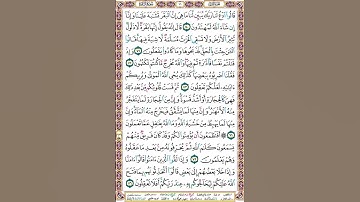 قَالُوا۟ ٱدْعُ لَنَا رَبَّكَ يُبَيِّن لَّنَا مَا هِىَ إِنَّ ٱلْبَقَرَ تَشَـٰبَهَ عَلَيْنَا وَإِنَّآ
إِن شَآءَ ٱللَّهُ لَمُهْتَدُونَ ۝ قَالَ إِنَّهُۥ يَقُولُ إِنَّهَا بَقَرَةٌ لَّا ذَلُولٌ
تُثِيرُ ٱلْأَرْضَ وَلَا تَسْقِى ٱلْحَرْثَ مُسَلَّمَةٌ لَّا شِيَةَ فِيهَا قَالُوا۟
ٱلْـَٔـٰنَ جِئْتَ بِٱلْحَقِّ فَذَبَحُوهَا وَمَا كَادُوا۟ يَفْعَلُونَ ۝
وَإِذْ قَتَلْتُمْ نَفْسًا فَٱدَّٰرَْٰٔتُمْ فِيهَا وَٱللَّهُ مُخْرِجٌ مَّا كُنتُمْ تَكْتُمُونَ ۝
فَقُلْنَا ٱضْرِبُوهُ بِبَعْضِهَا كَذَٰلِكَ يُحْىِ ٱللَّهُ ٱلْمَوْتَىٰ وَيُرِيكُمْ
ءَايَـٰتِهِۦ لَعَلَّكُمْ تَعْقِلُونَ ۝ ثُمَّ قَسَتْ قُلُوبُكُم مِّنۢ بَعْدِ ذَٰلِكَ
فَهِىَ كَٱلْحِجَارَةِ أَوْ أَشَدُّ قَسْوَةً وَإِنَّ مِنَ ٱلْحِجَارَةِ لَمَا يَتَفَجَّرُ
مِنْهُ ٱلْأَنْهَـٰرُ وَإِنَّ مِنْهَا لَمَا يَشَّقَّقُ فَيَخْرُجُ مِنْهُ ٱلْمَآءُ وَإِنَّ
مِنْهَا لَمَا يَهْبِطُ مِنْ خَشْيَةِ ٱللَّهِ وَمَا ٱللَّهُ بِغَـٰفِلٍ عَمَّا تَعْمَلُونَ
۝ أَفَتَطْمَعُونَ أَن يُؤْمِنُوا۟ لَكُمْ وَقَدْ كَانَ فَرِيقٌ مِّنْهُمْ
يَسْمَعُونَ كَلَـٰمَ ٱللَّهِ ثُمَّ يُحَرِّفُونَهُۥ مِنۢ بَعْدِ مَا عَقَلُوهُ
وَهُمْ يَعْلَمُونَ ۝ وَإِذَا لَقُوا۟ ٱلَّذِينَ ءَامَنُوا۟ قَالُوٓا۟ ءَامَنَّا
وَإِذَا خَلَا بَعْضُهُمْ إِلَىٰ بَعْضٍ قَالُوٓا۟ أَتُحَدِّثُونَهُم بِمَا فَتَحَ
ٱللَّهُ عَلَيْكُمْ لِيُحَآجُّوكُم بِهِۦ عِندَ رَبِّكُمْ أَفَلَا تَعْقِلُونَ ۝